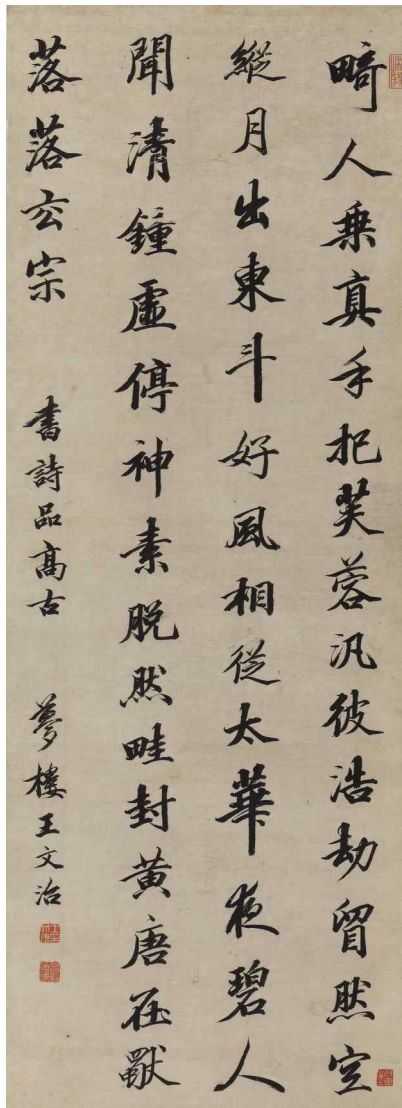 畸人乗真手把芙蓉汎彼浩劫窅然空
縱月出東斗好風相從太華夜碧人
聞清鐘虛停神素脫然畦封黃唐在獨
落落玄宗
書詩品高古
夢樓王文治